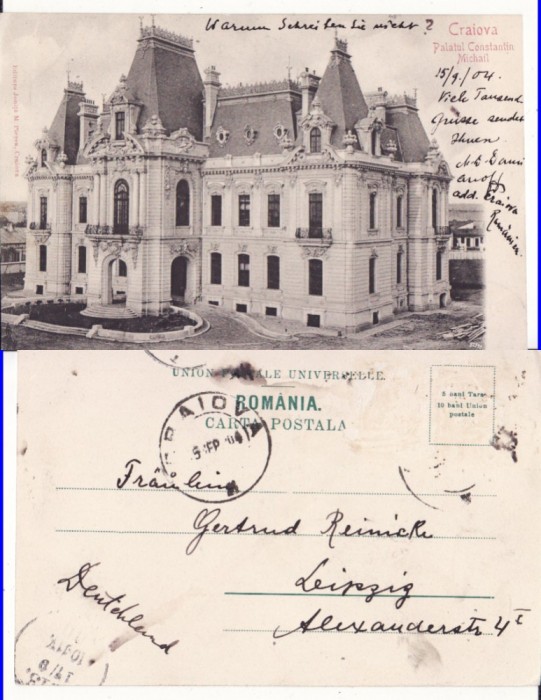 Warum Schreiben Sie nicht?
Craiova
Palatul Constantin
Michail
15/9./04.
Viele Tausend
Grüsse sendet
Ihnen
add. Craiova
Rumänien.
UNION POSTALE UNIVERSELLE.
ROMÂNIA.
CARTA POSTALA
5 bani Tara
10 bani Union
postale
CRAIOVA
SEP
Fräulein
Gertrud Reinicke
Leipzig
Alexanderstr 4 I
Deutchland